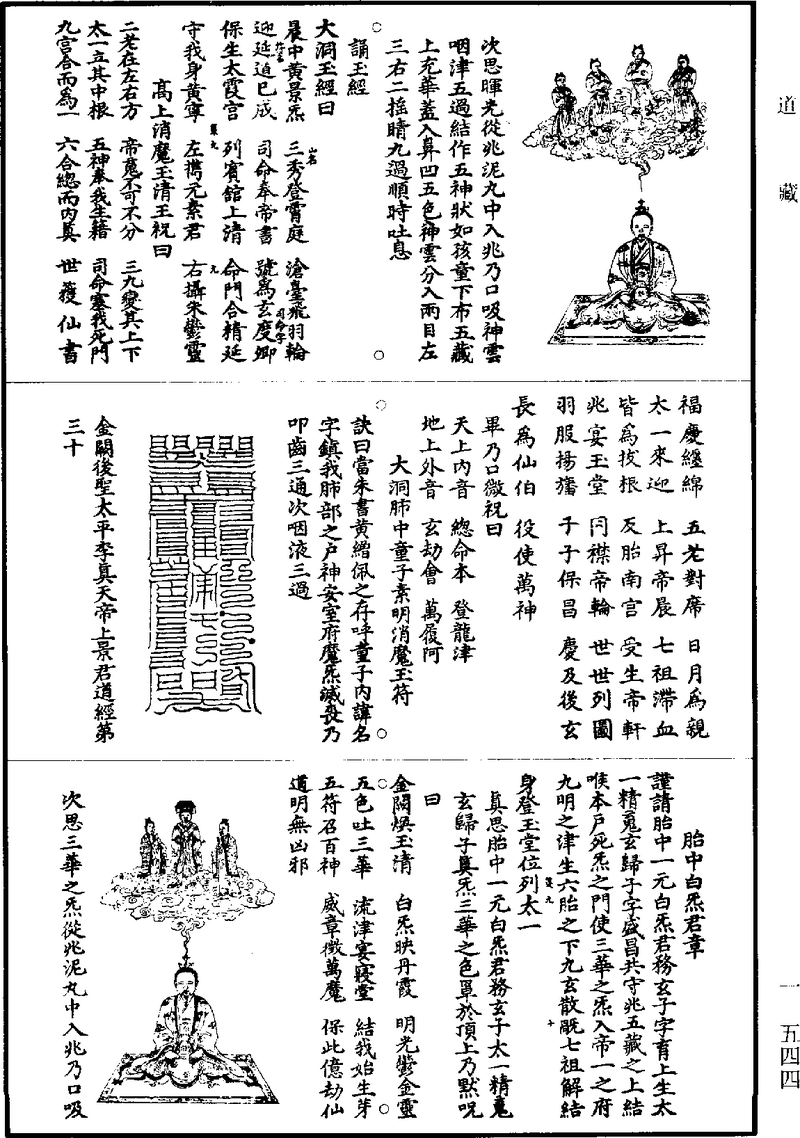 道藏
次思暉光從兆泥丸中入兆乃口吸神雲
咽津五過結作五神狀如孩童下布五藏
上充華蓋入鼻凹五色神雲分入兩目左
三右二搖睛九過順時吐息
誦玉經
大洞玉經曰
晨中黃景炁 三秀登霄庭 滄臺飛羽輪
迎延迫已成 司命奉帝書 號爲玄度卿
保生太霞宮 列賓館上清 命門合精延
守我身黃寧 左攜元素君 右攝朱鬱靈
高上消魔玉清王祝曰
二老在左右方 帝嵬不可不分 三九變其上下
太一立其中根 五神奉我生籍 司命塞我死門
九宮合而爲一 六合總而内真 世薎仙書
福慶纏綿 五老對席 日月爲親
太一來迎 上昇帝晨 七祖滯血
皆爲拔根 反胎南宮 受生帝軒
兆宴玉堂 同襟帝輪 世世列圖
羽服揚旛 子子保昌 慶及後玄
長爲仙伯 役使萬神
畢乃口微祝曰
天上内音 總命本 登龍津
地上外音 玄劫會 萬履阿
大洞肺中童子素明消魔玉符
訣曰當朱書黃繒佩之存呼童子内諱名
字鎮我肺部之户神安室府魔炁滅喪乃
叩齒三通次咽液三過
金闕後聖太平李真天帝上景君道經第
三十
胎中白炁君章
謹請胎中一元白炁君務玄子字育上生太
一精嵬玄歸子字盛昌共守兆五藏之上結
喉本户死炁之門使三華之炁入帝一之府
九明之津生六胎之下九玄散既七祖解結
身登玉堂位列太一
真思胎中一元白炁君務玄子太一精嵬
玄歸子真炁三華之色罩於頂上乃默呪
曰
金闕煥玉清 白炁映丹霞 明光鬱金靈
五色吐三華 流津宴寢堂 結我始生芽
五符召百神 威章徵萬魔 保此億劫仙
道明無凶邪
次思三華之炁從兆泥丸中入兆乃口吸
一 五四四